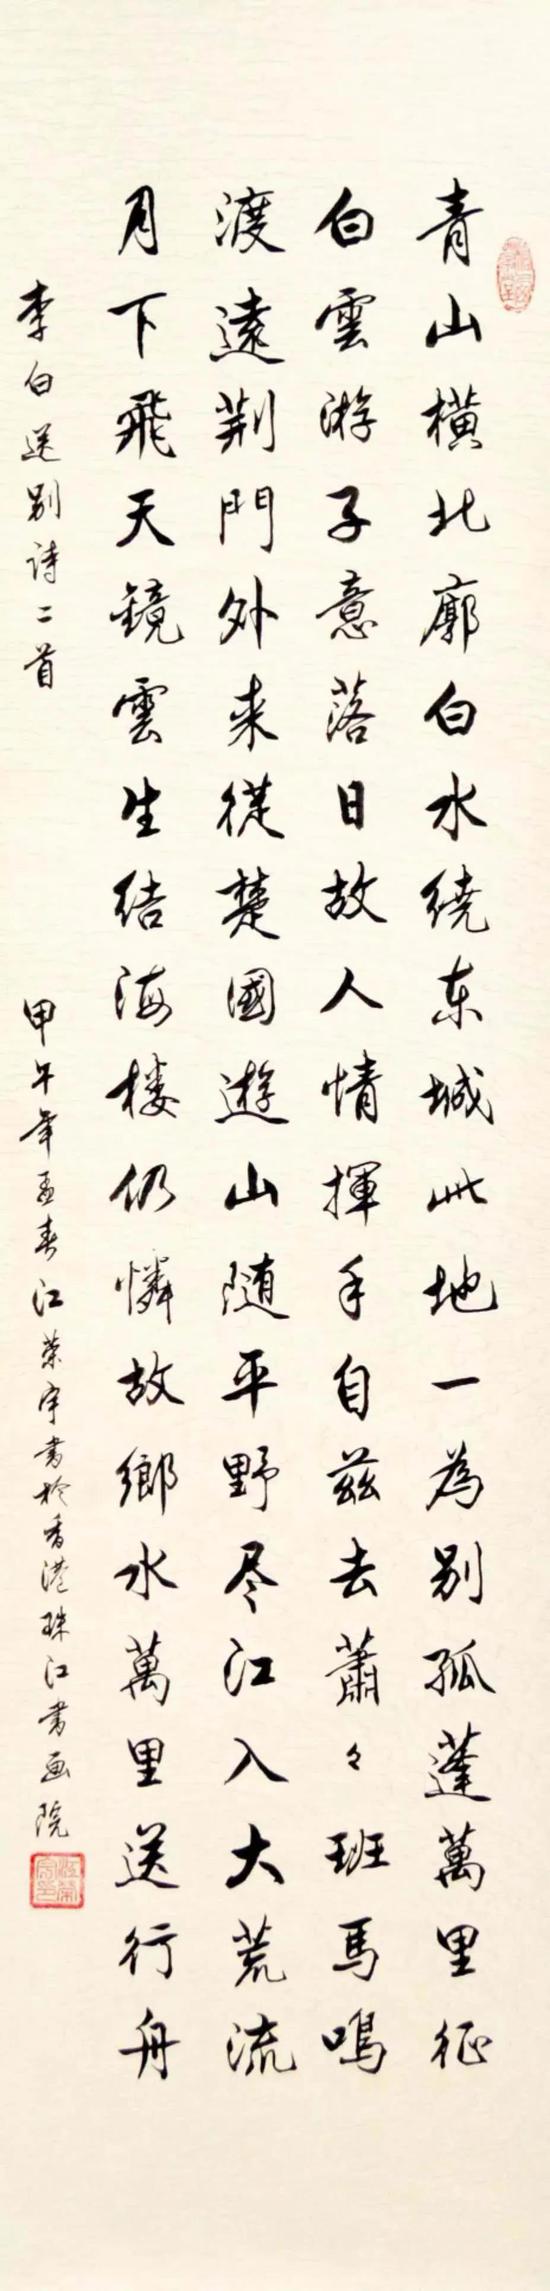 青山橫北廓白水繞东城此地一為別孤蓬萬里征
白雲游子意落日故人情揮手自茲去蕭々班馬鳴
渡遠荆門外来從楚國遊山随平野尽江入大荒流
月下飛天鏡雲生结海楼仍憐故鄉水萬里送行舟
李白送别诗二首
甲午年孟春江荣宇書於香港珠江書画院